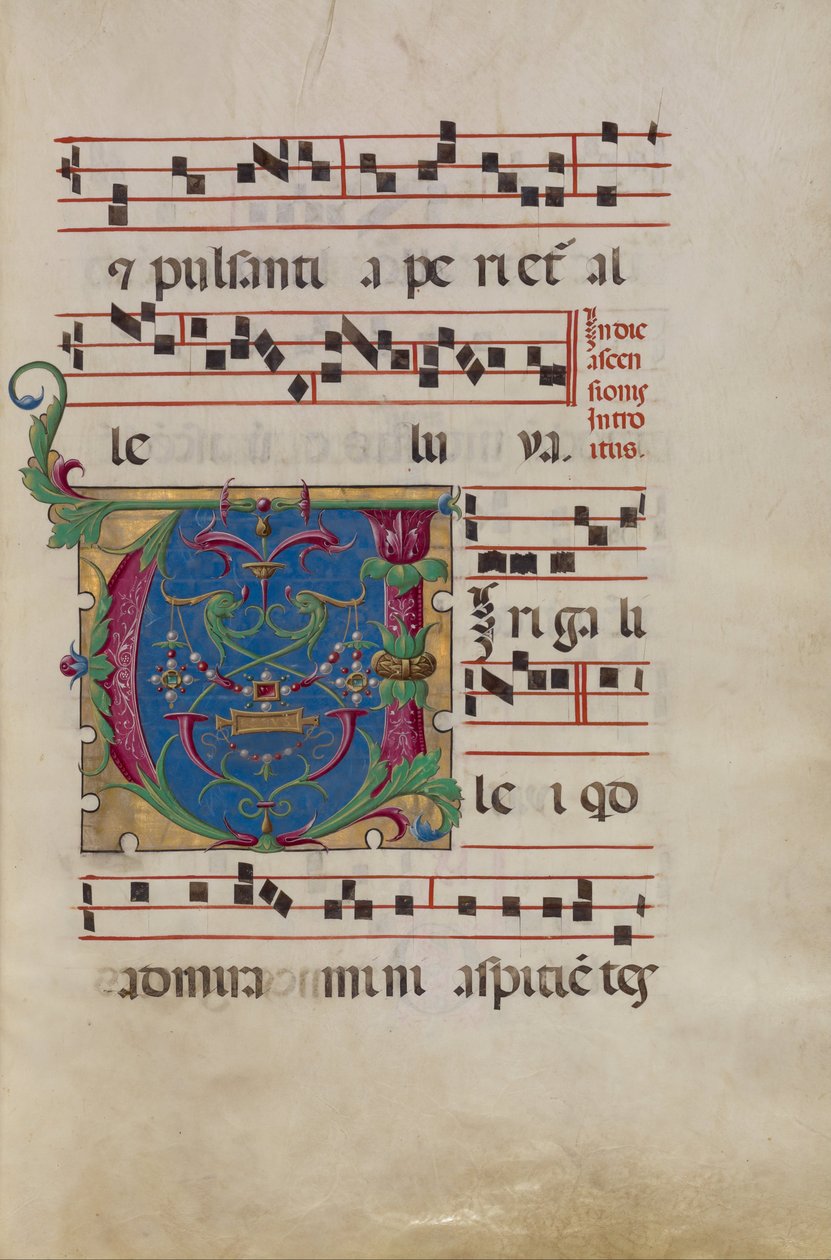 ⁊ pulsanti a pe ri et᷑ al
le lu ya.
In die
ascen
sionis
Intro
itus.
V iri ga li
le i qd
admira mini aspiciẽ tes